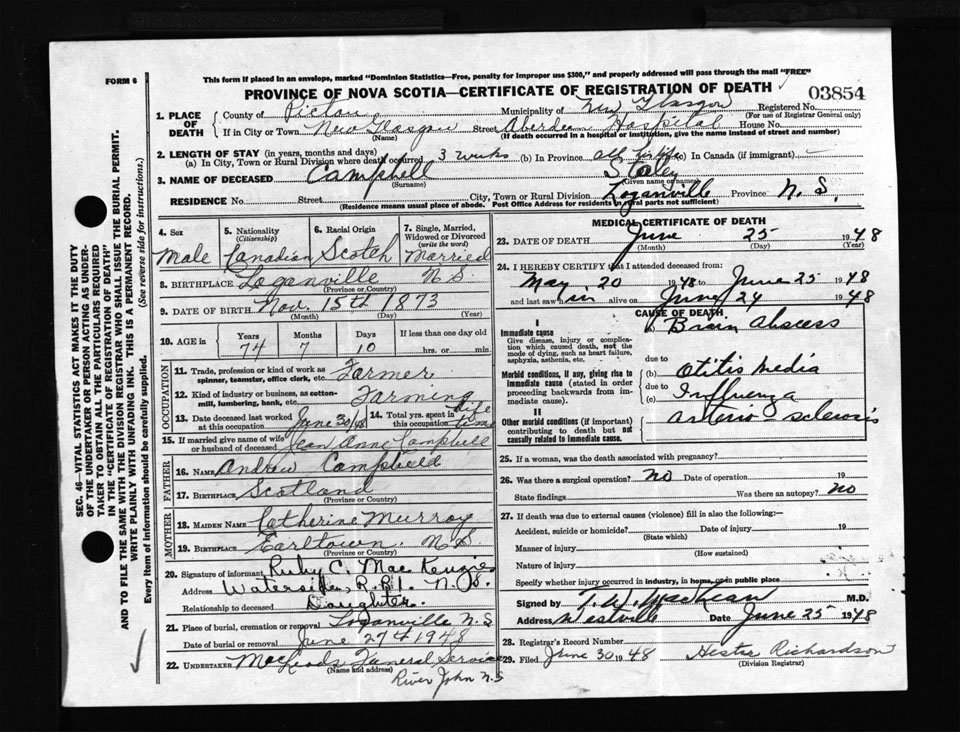 FORM 6
This form if placed in an envelope, marked "Dominion Statistics—Free, penalty for improper use $300," and properly addressed will pass through the mail "FREE"
PROVINCE OF NOVA SCOTIA—CERTIFICATE OF REGISTRATION OF DEATH
03854
1. PLACE OF DEATH
County of Pictou Municipality of New Glasgow Registered No.
(For use of Registrar General only)
If in City or Town New Glasgow Street Aberdeen Hospital House No.
(Name) (If death occurred in a hospital or institution, give the name instead of street and number)
2. LENGTH OF STAY (in years, months and days)
(a) In City, Town or Rural Division where death occurred 3 weeks (b) In Province all his life (c) In Canada (if immigrant) —
3. NAME OF DECEASED Campbell
(Surname) (Given name or names)
RESIDENCE No. Street City, Town or Rural Division Loganville Province N. S.
(Residence means usual place of abode. Post Office Address for residents in rural parts not sufficient)
4. Sex Male
5. Nationality (Citizenship) Canadian
6. Racial Origin Scotch
7. Single, Married, Widowed or Divorced (write the word) Married
8. BIRTHPLACE Loganville N.S.
(Province or Country)
9. DATE OF BIRTH Nov. 15th 1873
(Month) (Day) (Year)
10. AGE in Years 74 Months 7 Days 10 If less than one day old hrs. or min.
OCCUPATION
11. Trade, profession or kind of work as spinner, teamster, office clerk, etc. Farmer
12. Kind of industry or business, as cotton-mill, lumbering, bank, etc. Farming
13. Date deceased last worked at this occupation June 30/48
14. Total yrs. spent in this occupation life time
15. If married give name of wife or husband of deceased Jean Anne Campbell
FATHER
16. NAME Andrew Campbell
17. BIRTHPLACE Scotland
(Province or Country)
MOTHER
18. MAIDEN NAME Catherine Murray
19. BIRTHPLACE Earltown. N.S.
(Province or Country)
20. Signature of informant Ruby C. MacKenzie
Address Waterside, R.R.1. N.S.
Relationship to deceased Daughter.
21. Place of burial, cremation or removal Loganville N.S
Date of burial or removal June 27th 1948
22. UNDERTAKER MacLeods Funeral Service
(Name and address)
River John N.S
MEDICAL CERTIFICATE OF DEATH
23. DATE OF DEATH June 25 1948
(Month) (Day) (Year)
24. I HEREBY CERTIFY that I attended deceased from:
May 20 1948 to June 25 1948
and last saw him alive on June 24 1948
CAUSE OF DEATH
I
Immediate cause
Give disease, injury or complication which caused death, not the mode of dying, such as heart failure, asphyxia, asthenia, etc.
Brain Abscess
due to
Morbid conditions, if any, giving rise to immediate cause (stated in order proceeding backwards from immediate cause).
(b) Otitis Media
due to
(c) Influenza
II
Other morbid conditions (if important) contributing to death but not causally related to immediate cause.
Arterio sclerosis
25. If a woman, was the death associated with pregnancy?
26. Was there a surgical operation? No Date of operation 19
State findings Was there an autopsy? No
27. If death was due to external causes (violence) fill in also the following:—
Accident, suicide or homicide? Date of injury 19
(State which)
Manner of injury
(How sustained)
Nature of injury
Specify whether injury occurred in industry, in home, or in public place
Signed by T. W. MacLean M.D.
Address Westville Date June 25 1948
28. Registrar's Record Number
29. Filed June 30 1948 Hester Richardson
(Division Registrar)
SEC. 46—VITAL STATISTICS ACT MAKES IT THE DUTY
OF THE UNDERTAKER OR PERSON ACTING AS UNDER-
TAKER TO OBTAIN ALL THE PARTICULARS REQUIRED
IN THE "CERTIFICATE OF REGISTRATION OF DEATH"
AND TO FILE THE SAME WITH THE DIVISION REGISTRAR WHO SHALL ISSUE THE BURIAL PERMIT.
WRITE PLAINLY WITH UNFADING INK. THIS IS A PERMANENT RECORD.
Every item of information should be carefully supplied. (See reverse side for instructions.)